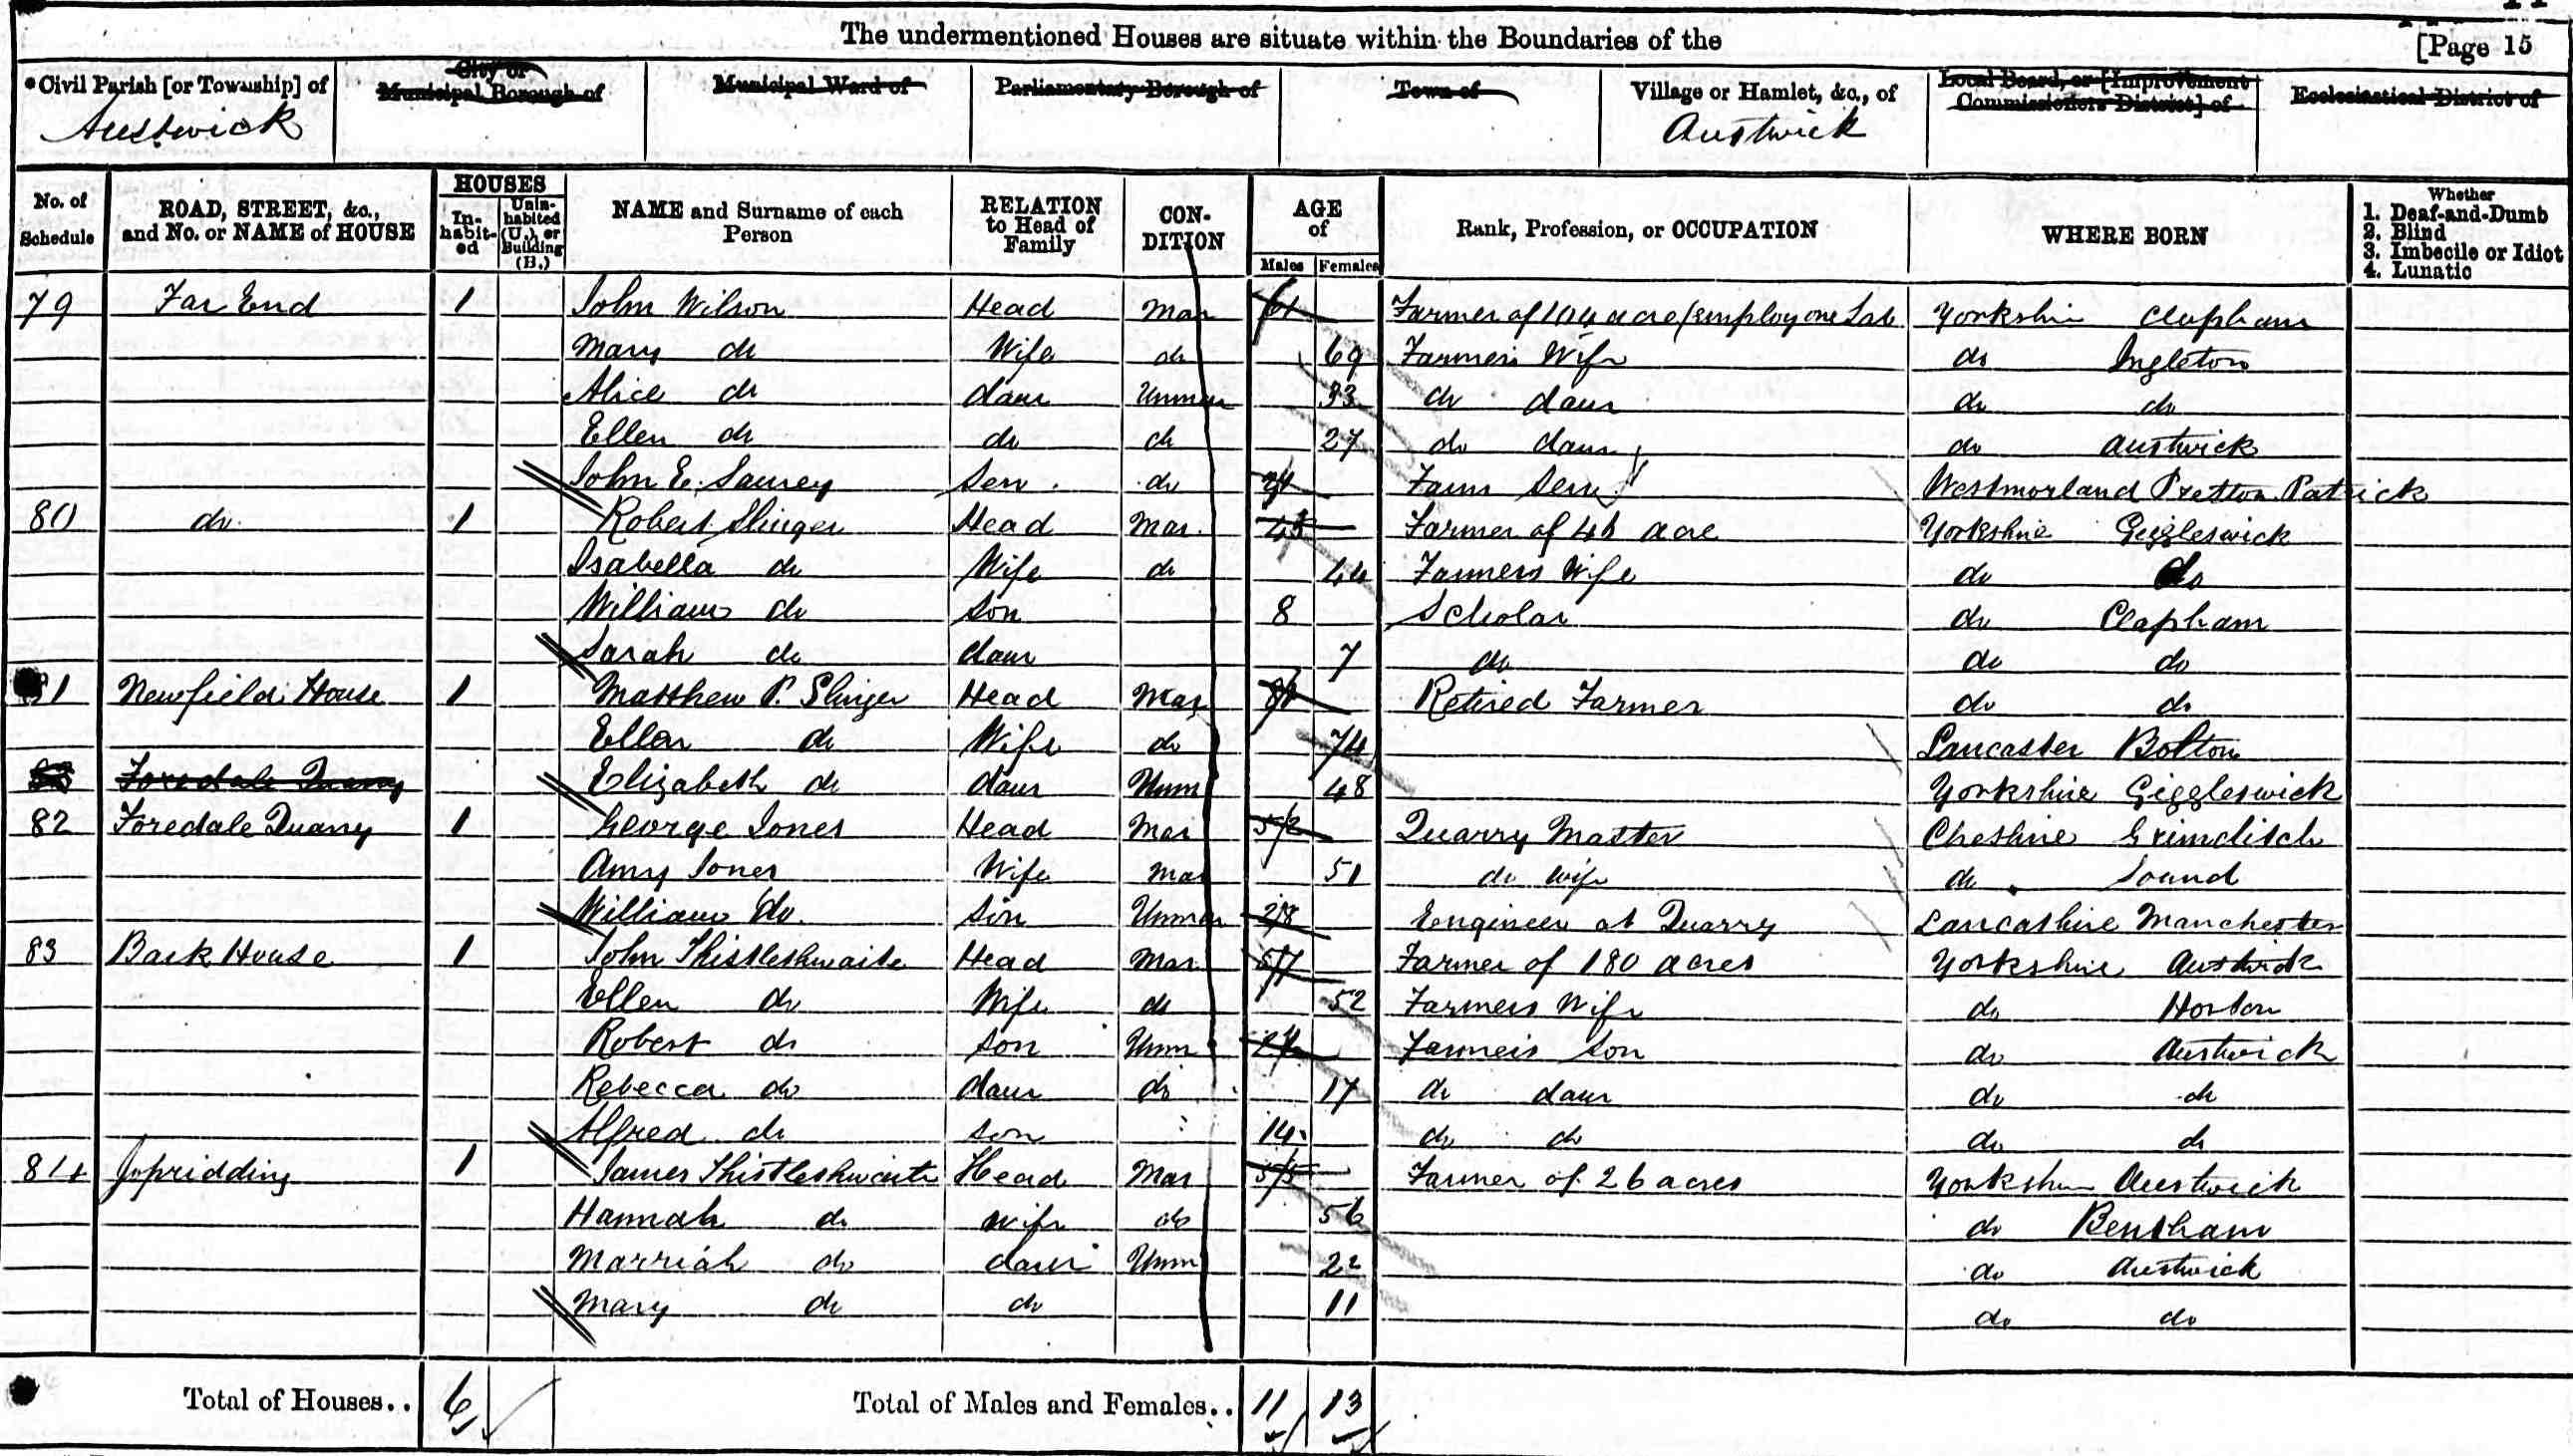 The undermentioned Houses are situate within the Boundaries of the
[Page 15
Civil Parish [or Township] of
Austwick
City or Municipal Borough of
Municipal Ward of
Parliamentary Borough of
Town of
Village or Hamlet, &c., of
Austwick
Local Board, or [Improvement Commissioners District] of
Ecclesiastical District of
No. of Schedule
ROAD, STREET, &c., and No. or NAME of HOUSE
HOUSES
In-habit-ed
Unin-habited (U.), or Building (B.)
NAME and Surname of each Person
RELATION to Head of Family
CON-DITION
AGE of
Males Females
Rank, Profession, or OCCUPATION
WHERE BORN
Whether
1. Deaf-and-Dumb
2. Blind
3. Imbecile or Idiot
4. Lunatic
79 Far End 1 John Wilson Head Mar 61 Farmer of 104 acre (employ one Lab Yorkshire Clapham
Mary do Wife do 69 Farmers Wife do Ingleton
Alice do daur Unmar 33 do daur do do
Ellen do do do 27 do daur do Austwick
John E. Saurey Serv do 24 Farm Serv Westmorland Preston Patrick
80 do 1 Robert Slinger Head Mar. 43 Farmer of 46 acre Yorkshire Giggleswick
Isabella do Wife do 44 Farmers Wife do do
William do Son 8 Scholar do Clapham
Sarah do daur 7 do do do
81 Newfield House 1 Matthew P. Slinger Head Mar 81 Retired Farmer do do
Ellen do Wife do 74 Lancaster Bolton
Foredale Quarry Elizabeth do daur Unm 48 Yorkshire Giggleswick
82 Foredale Quarry 1 George Jones Head Mar 52 Quarry Master Cheshire Grimditch
Amy Jones Wife Mar 51 do wife do Sound
William Do. Son Unmar 28 Engineer at Quarry Lancashire Manchester
83 Bark House 1 John Thistlethwaite Head Mar 57 Farmer of 180 acres Yorkshire Austwick
Ellen do Wife do 52 Farmers Wife do Horton
Robert do Son Unm 24 Farmers Son do Austwick
Rebecca do daur do 17 do daur do do
Alfred do son 14 do do do do
84 Jopridding 1 James Thistlethwaite Head Mar 55 Farmer of 26 acres Yorkshire Austwick
Hannah do wife do 56 do Bentham
Marriah do daur Unm 22 do Austwick
Mary do do 11 do do
Total of Houses.. 6
Total of Males and Females.. 11 13